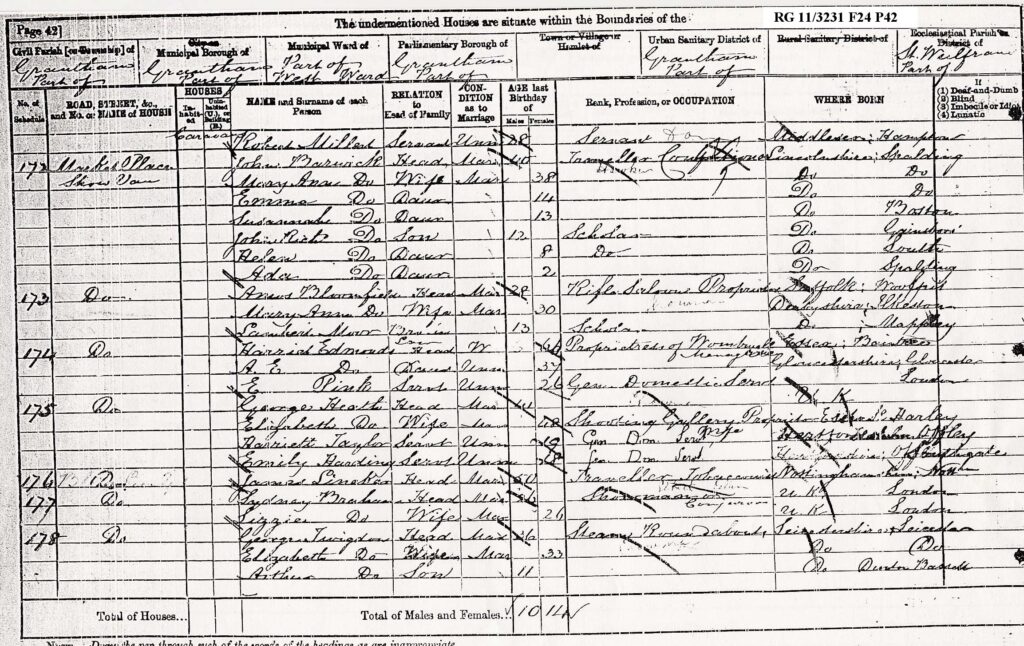 Page 42]
The undermentioned Houses are situate within the Boundaries of the
RG 11/3231 F24 P42
Civil Parish [or Township] of
City or
Municipal Borough of
Municipal Ward of
Parliamentary Borough of
Town or Village or
Hamlet of
Urban Sanitary District of
Rural Sanitary District of
Ecclesiastical Parish or
District of
Grantham
Part of
Grantham
Part of
Part of
West Ward
Grantham
Part of
Grantham
Part of
St. Wulfram
Part of
No. of Schedule
ROAD, STREET, &c., and No. or NAME of HOUSE
HOUSES
In-habited
Unin-habited (U.), or Building (B.)
NAME and Surname of each Person
RELATION to Head of Family
CON-DITION as to Marriage
AGE last Birthday of
Males
Females
Rank, Profession, or OCCUPATION
WHERE BORN
If
(1) Deaf-and-Dumb
(2) Blind
(3) Imbecile or Idiot
(4) Lunatic
Caravan
Robert Millers Servant Unm 28 Servant Dom Middlesex; Hampton
172 Market Place John Barwick Head Mar 40 Traveller Confectioner Lincolnshire; Spalding
Show Van Mary Ann Do Wife Mar 38 Hawker Do Do
Emma Do Daur 14 Do Do
Susannah Do Daur 13 Do Boston
John Rich Do Son 12 Scholar Do Gainsboro'
Helen Do Daur 8 Do Do Louth
Ada Do Daur 2 Do Spalding
173 Do Bloomfield Head Mar 28 Rifle Saloon Proprietor Suffolk;
Mary Ann Do Wife Mar 30 Derbyshire; Ilkeston
13 Scholar Do Mappley
174 Do Harriet Edmonds Head W Proprietress of Wombwells Menagerie Essex; Braintree
A. E. Do Daur Unm 37 Gloucestershire; Gloucester
E. Pink Servt Unm 26 Gen Domestic Servt London
175 Do George Heath Head Mar 41 U K
Elizabeth Do Wife Mar 48 Shooting Gallery Proprietor Wife Essex; Harley
Harriett Taylor Servt Unm 19 Gen Dom Servt
Emily Harding Servt Unm Gen Dom Servt
176 Do James Head Mar 50 Traveller Nottingham
177 Do Sydney Head Mar 26 Showman U K London
Lizzie Do Wife Mar 26 U K London
178 Do George Twigdon Head Mar 36 Steam Roundabout Leicestershire; Leicester
Elizabeth Do Wife Mar 33 Do Do
Arthur Do Son 11 Do Dunton Bassett
Total of Houses...
Total of Males and Females...
10 14